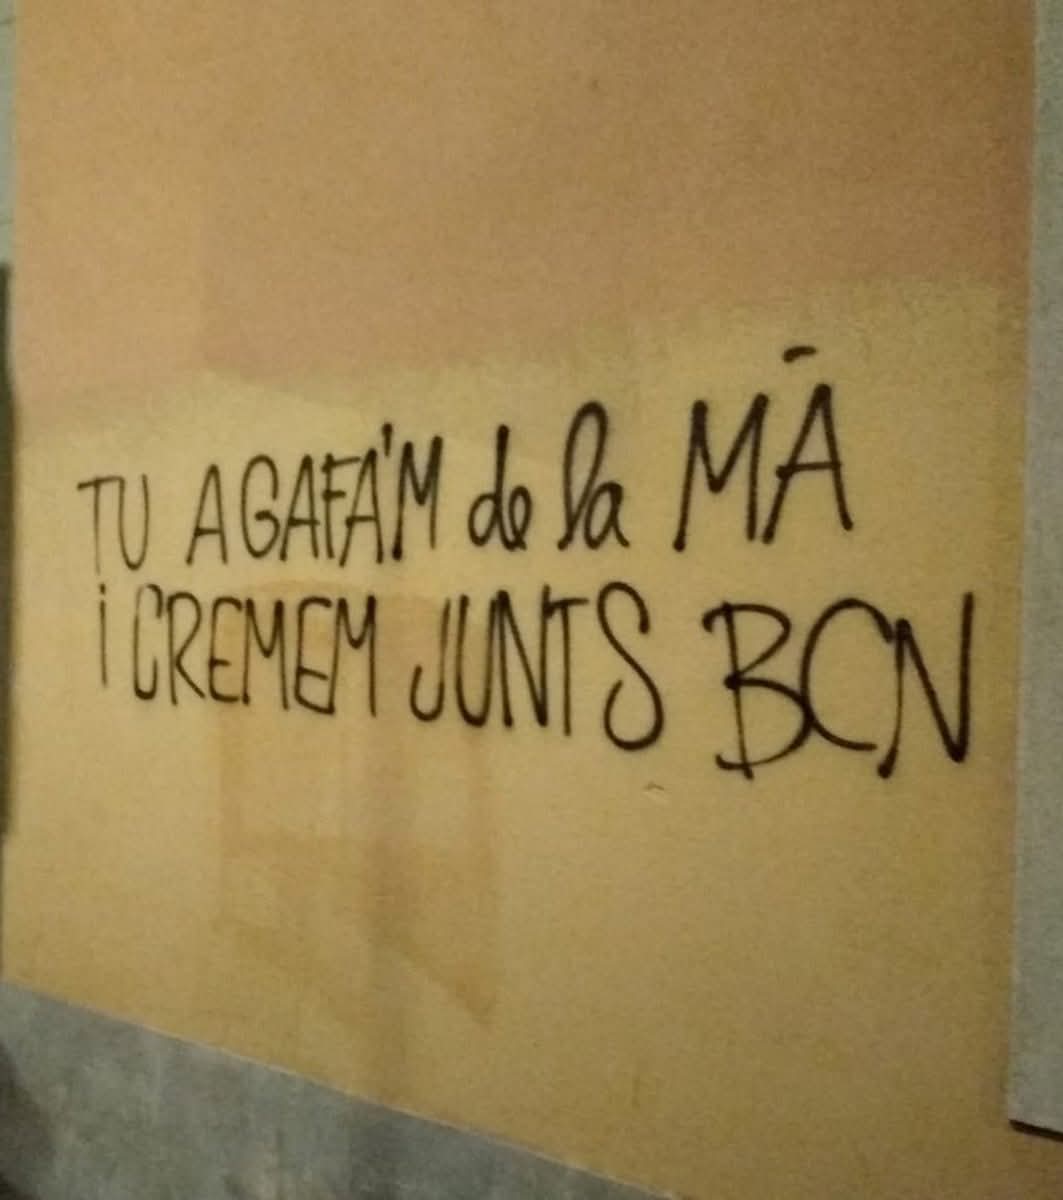 TU AGAFA'M de la MÀ
i CREMEM JUNTS BCN